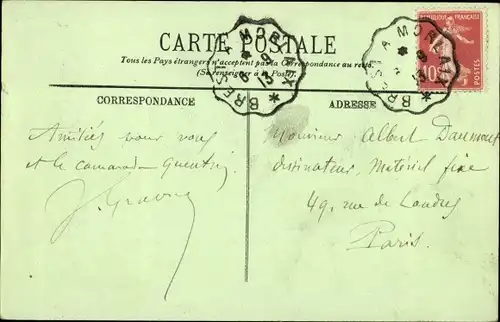 CARTE POSTALE
Tous les Pays étrangers n'acceptent pas la Correspondance au recto.
(Se renseigner à la Poste)
BREST A MORLAIX
BREST A MORLAIX
REPUBLIQUE FRANÇAISE
10c
POSTES
CORRESPONDANCE
ADRESSE
Amitiés pour vous
et le camarade Quentin
J. 
Monsieur Albert
dessinateur, Matériel fixe
49, rue de Londres
Paris.